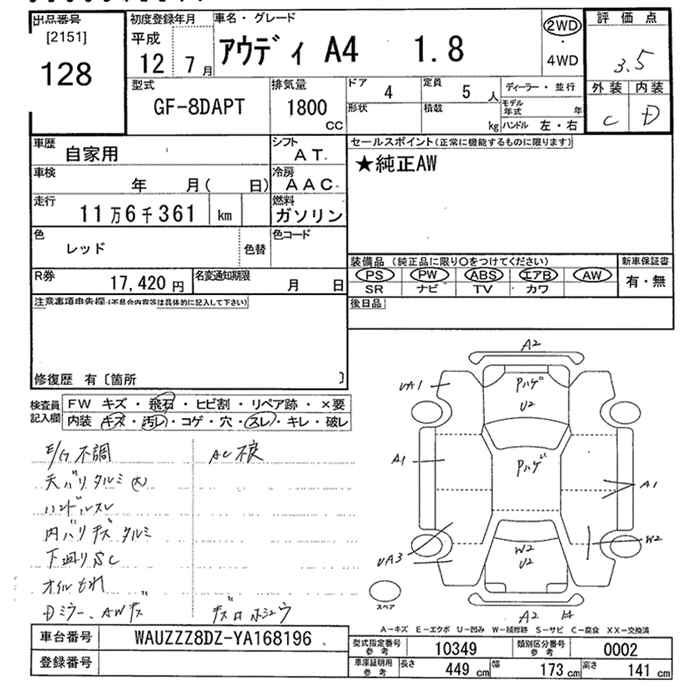 出品番号
[2151]
128
初度登録年月
平成
12 7月
車名・グレード
アウディ A4 1.8
2WD
・
4WD
評価点
3.5
外装 内装
C D
型式
GF-8DAPT
排気量
1800
CC
ドア
4
定員
5 人
ディーラー・並行
形状
積載
kg
モデル年式 年
ハンドル 左・右
車歴
自家用
シフト
AT
車検
年 月( 日)
冷房
AAC
走行
11万6千361 km
燃料
ガソリン
色
レッド
色替
色コード
R券
17,420円
名変通知期限
月 日
セールスポイント(正常に機能するものに限ります)
★純正AW
装備品(純正品に限り〇をつけてください)
PS PW ABS エアB AW
SR ナビ TV カワ
新車保証書
有・無
後日品
注意事項申告欄(不具合内容等は具体的に記入して下さい)
修復歴 有〔箇所 〕
検査員記入欄
FW キズ・飛石・ヒビ割・リペア跡・×要
内装・キズ・汚レ・コゲ・穴・スレ・キレ・破レ
E/G不調 AC不良
天バリタルミ(大)
ハンドルスレ
内バリキズタルミ
下廻りSC
オイルもれ
Dミラー、AWキズ キズ口ホシュウ
A2
UA1
Pハゲ
U2
A1
Pハゲ
A1
UA3
W2
U2
W2
スペア
A2
A-キズ E-エクボ U-凹み W-補修跡 S-サビ C-腐食 XX-交換済
車台番号
WAUZZZ8DZ-YA168196
登録番号
型式指定番号参考
10349
類別区分番号参考
0002
車庫証明用参考
長さ 449cm
幅 173cm
高さ 141cm